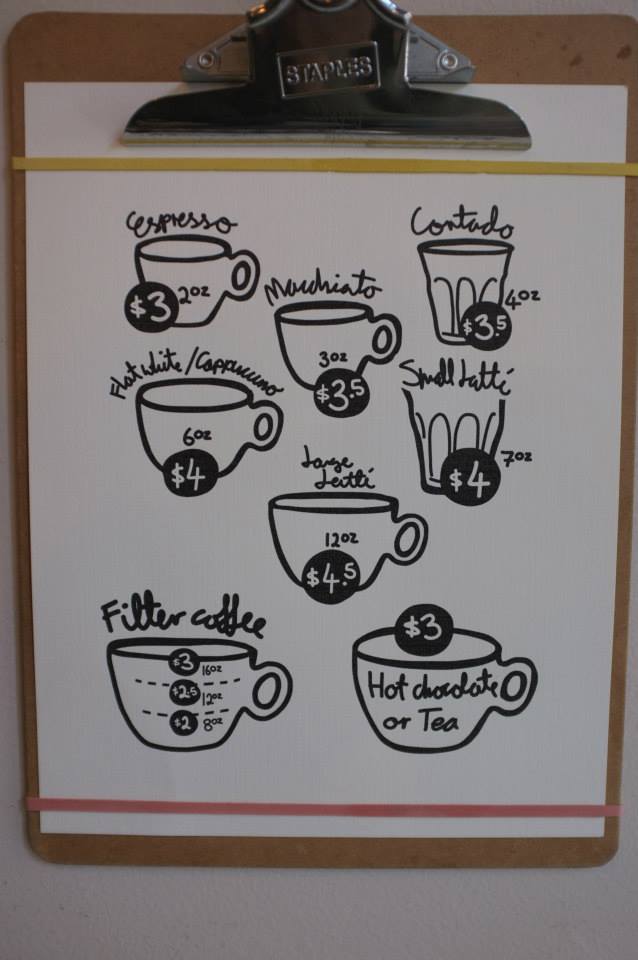 STAPLES
Espresso
$3 2oz
Contado
4oz
$3.5
Macchiato
3oz
$3.5
Flat white/Cappuccino
6oz
$4
Small Latté
7oz
$4
Large
Latté
12oz
$4.5
Filter coffee
$3 16oz
$2.5 12oz
$2 8oz
$3
Hot chocolate
or Tea